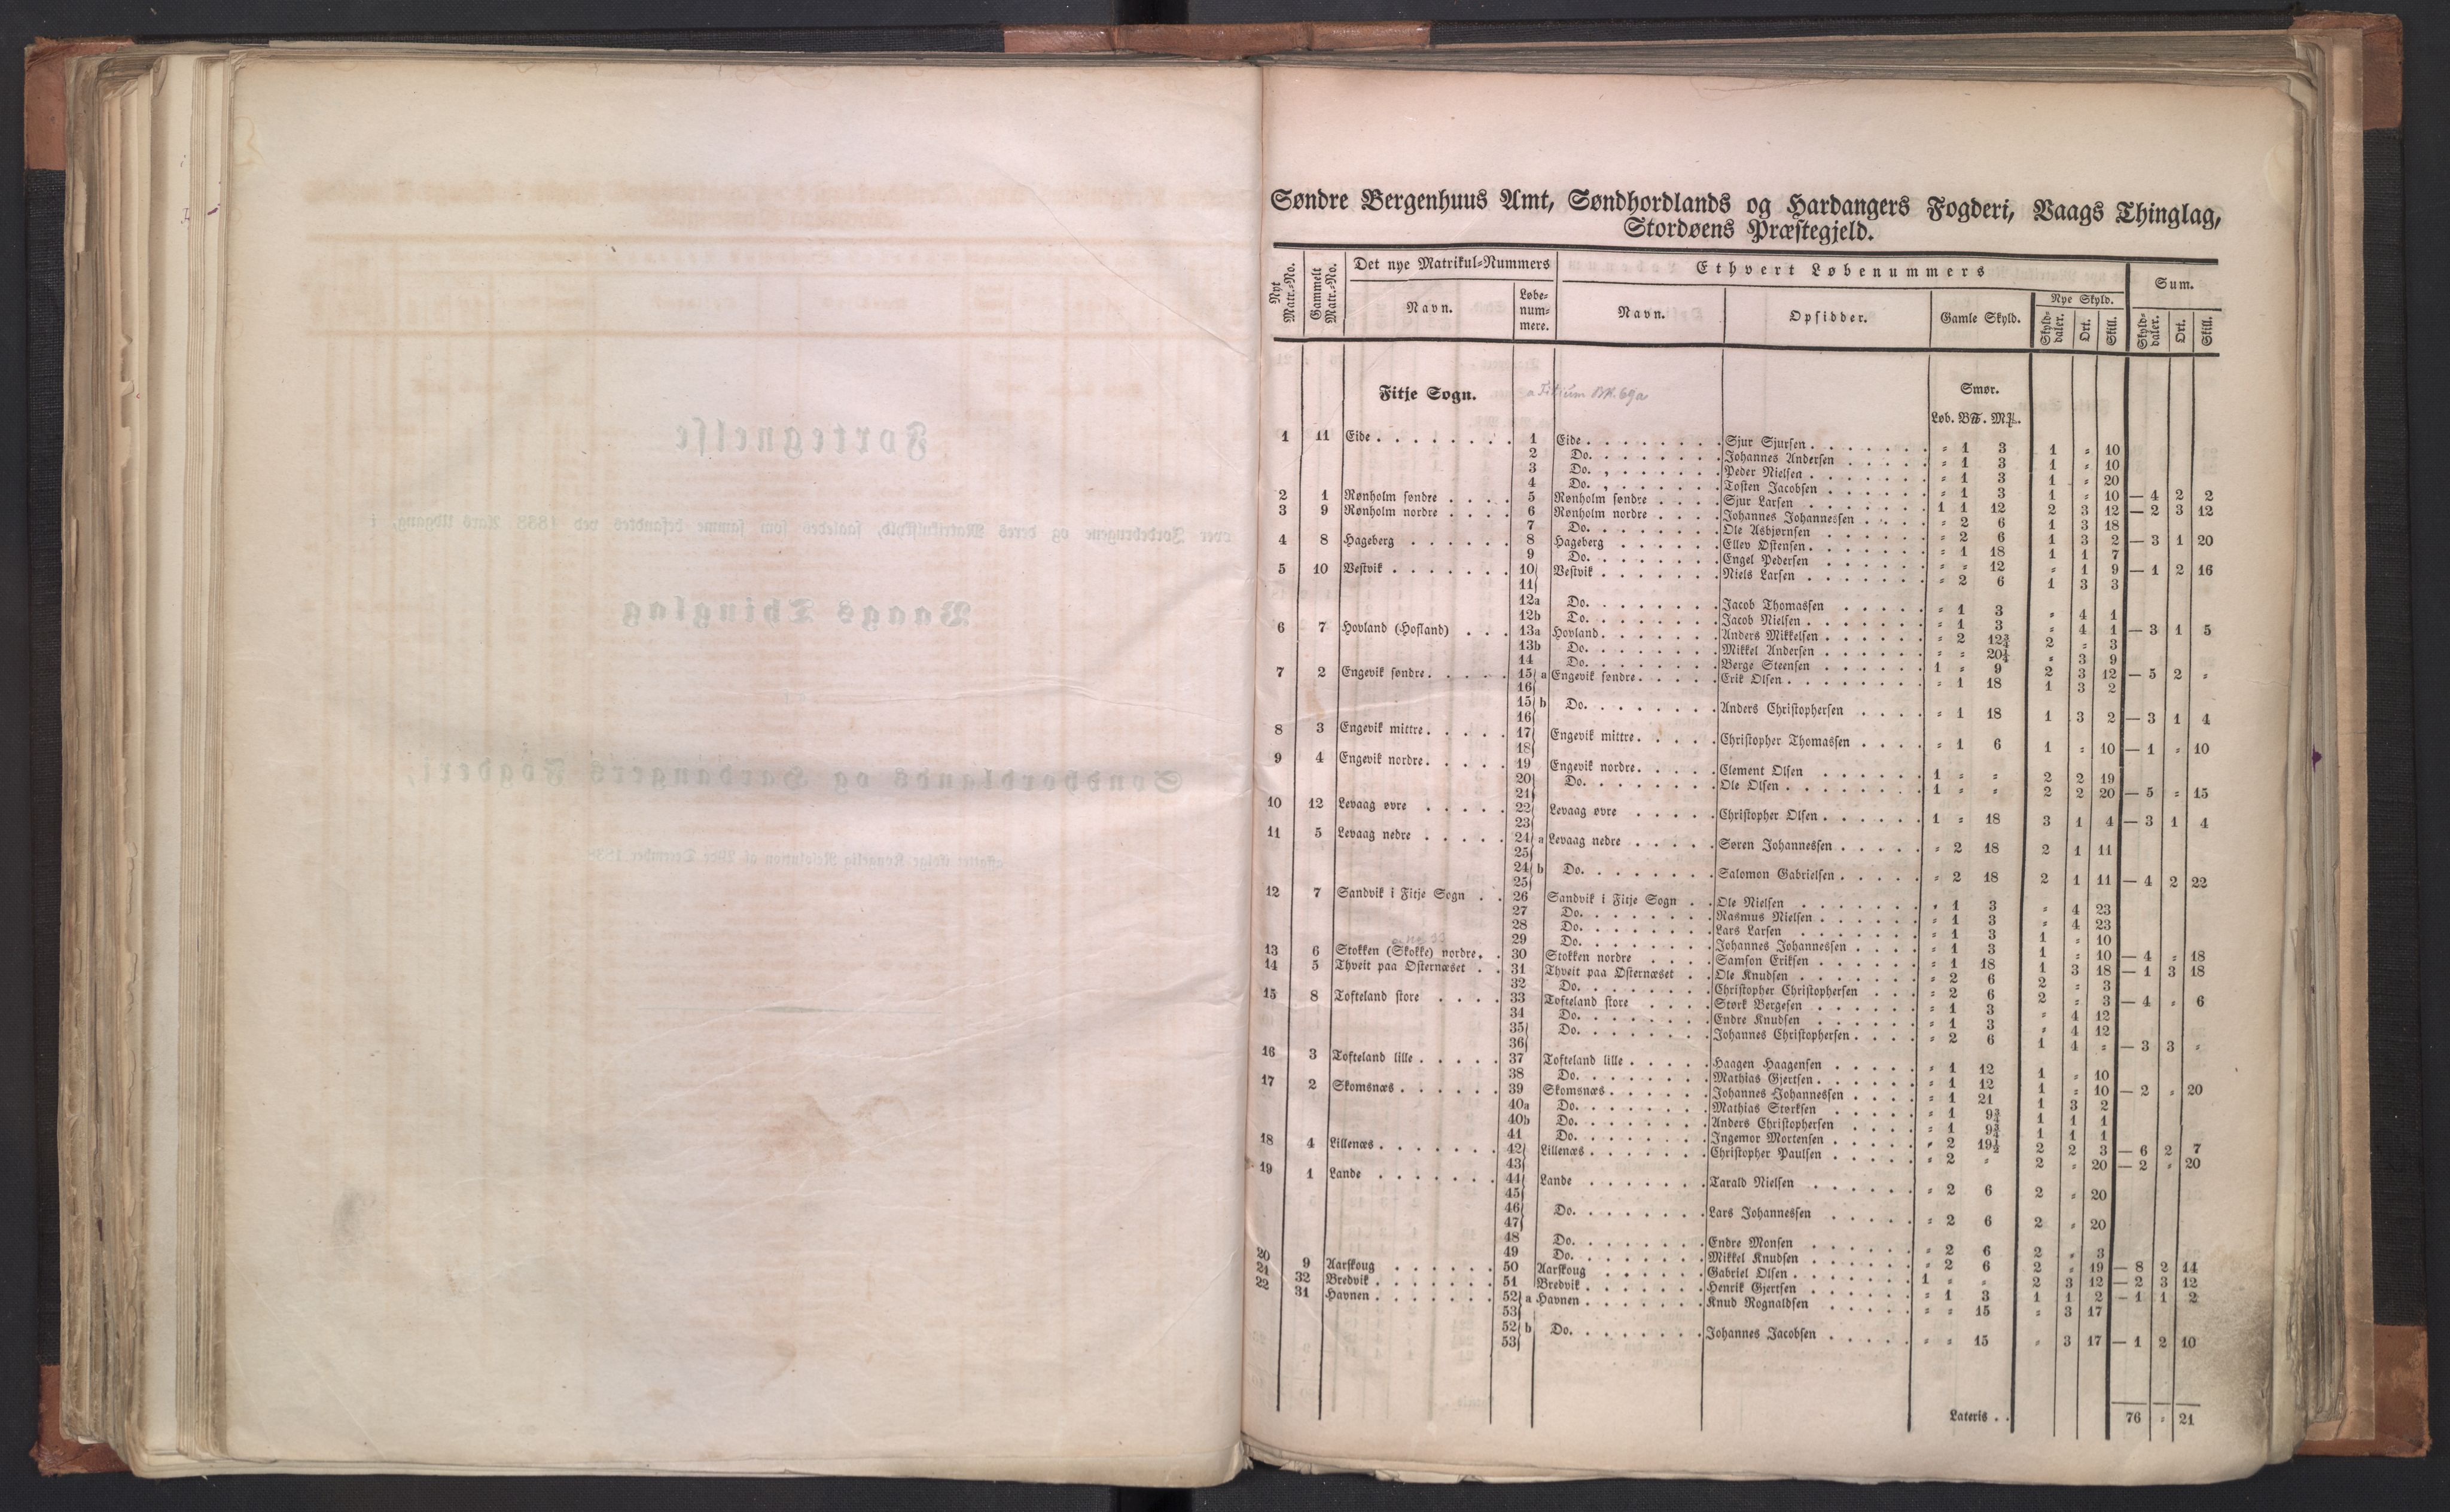 Søndre Bergenhuus Amt, Søndhordlands og Hardangers Fogderi, Vaags Thinglag,
Stordøens Præstegjeld.
Nyt Matr.-No. Gammelt Matr.-No. Det nye Matrikul-Nummers Ethvert Løbenummers Sum.
Navn. Løbe-nummere. Navn. Opsidder. Gamle Skyld. Nye Skyld. Skylddaler. Ort. Skill. Skylddaler. Ort. Skill.
Fitje Sogn. Smør.
Løb. B℔. M℔.
1 11 Eide 1 Eide Sjur Sjursen = 1 3 1 = 10
2 Do. Johannes Andersen = 1 3 1 = 10
3 Do. Peder Nielsen = 1 3 1 = 20
4 Do. Tosten Jacobsen = 1 3 1 = 10 — 4 2 2
2 1 Rønholm søndre 5 Rønholm søndre Sjur Larsen 1 1 12 2 3 12 — 2 3 12
3 9 Rønholm nordre 6 Rønholm nordre Johannes Johannessen = 2 6 1 3 18
7 Do. Ole Asbjørnsen = 2 6 1 3 2 — 3 1 20
4 8 Hageberg 8 Hageberg Ellev Østensen = 1 18 1 1 7
9 Do. Engel Pedersen = = 12 = 1 9 — 1 2 16
5 10 Vestvik 10 Vestvik Niels Larsen = 2 6 1 3 3
11
12a Do. Jacob Thomassen = 1 3 = 4 1
12b Do. Jacob Nielsen = 1 3 = 4 1 — 3 1 5
6 7 Hovland (Hofland) 13a Hovland Anders Mikkelsen = 2 12¾ 2 = 3
13b Do. Mikkel Andersen = = 20¼ = 3 9
14 Do. Berge Steensen 1 = 9 2 3 12 — 5 2 =
7 2 Engevik søndre 15 a Engevik søndre Erik Olsen = 1 18 1 3 2
16
15 b Do. Anders Christophersen = 1 18 1 3 2 — 3 1 4
16
8 3 Engevik mittre 17 Engevik mittre Christopher Thomassen = 1 6 1 = 10 — 1 = 10
18
9 4 Engevik nordre 19 Engevik nordre Clement Olsen 1 = = 2 2 19
20 Do. Ole Olsen 1 = = 2 2 20 — 5 = 15
21
10 12 Levaag øvre 22 Levaag øvre Christopher Olsen 1 = 18 3 1 4 — 3 1 4
23
11 5 Levaag nedre 24 a Levaag nedre Søren Johannessen = 2 18 2 1 11
25
24 b Do. Salomon Gabrielsen = 2 18 2 1 11 — 4 2 22
25
12 7 Sandvik i Fitje Sogn 26 Sandvik i Fitje Sogn Ole Nielsen = 1 3 = 4 23
27 Do. Rasmus Nielsen = 1 3 = 4 23
28 Do. Lars Larsen = 1 3 1 = 10
29 Do. Johannes Johannessen = 1 3 1 = 10 — 4 = 18
13 6 Stokken (Skokke) nordre 30 Stokken nordre Samson Eriksen = 1 18 1 3 18 — 1 3 18
14 5 Thveit paa Østernæset 31 Thveit paa Østernæset Ole Knudsen = 2 6 2 = 3
32 Do. Christopher Christophersen = 2 6 2 = 3 — 4 = 6
15 8 Tofteland store 33 Tofteland store Størk Bergesen = 1 3 = 4 12
34 Do. Endre Knudsen = 1 3 = 4 12
35 Do. Johannes Christophersen = 2 6 1 4 = — 3 3 =
36
16 3 Tofteland lille 37 Tofteland lille Haagen Haagensen = 1 12 1 = 10
38 Do. Mathias Gjertsen = 1 12 1 = 10 — 2 = 20
17 2 Skomsnæs 39 Skomsnæs Johannes Johannessen = 1 21 1 3 2
40a Do. Mathias Størksen = 1 9¾ 1 1 1
40b Do. Anders Christophersen = 1 9¾ 1 1 1
41 Do. Ingemor Mortensen = 2 19½ 2 2 3 — 6 2 7
18 4 Lillenæs 42 Lillenæs Christopher Paulsen = 2 = 2 = 20 — 2 = 20
43
19 1 Lande 44 Lande Tarald Nielsen = 2 6 2 = 20
45
46 Do. Lars Johannessen = 2 6 2 = 20
47
48 Do. Endre Monsen = 2 6 2 = 3
49 Do. Mikkel Knudsen = 2 6 2 = 19 — 8 2 14
20 9 Aarskoug 50 Aarskoug Gabriel Olsen 1 = = 2 3 12 — 2 3 12
21 32 Bredvik 51 Bredvik Henrik Gjertsen = 1 3 1 1 2 — 1 1 2
22 31 Havnen 52 a Havnen Knud Rognaldsen = = 15 = 3 17
53
52 b Do. Johannes Jacobsen = = 15 = 3 17 — 1 2 10
53
Lateris 76 = 21